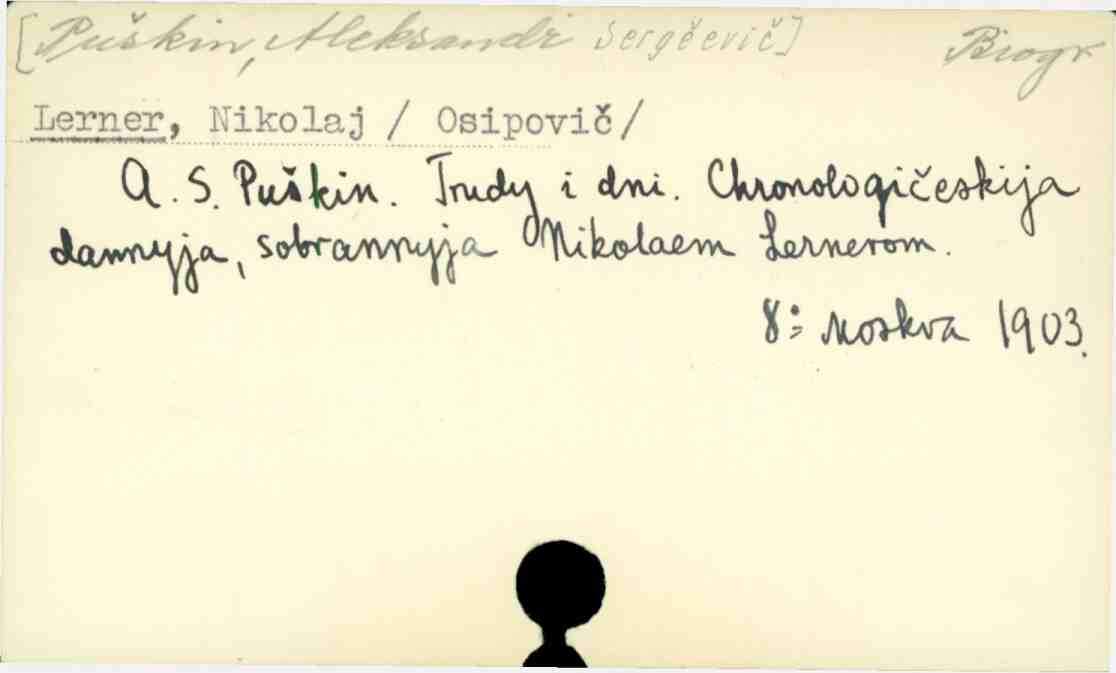 [Puškin, Aleksandr Sergěevič] Biogr
Lerner, Nikolaj / Osipovič/
A. S. Puškin. Trudy i dni. Chronologičeskija
dannyja, sobrannyja Nikolaem Lernerom.
8:° Moskva 1903.